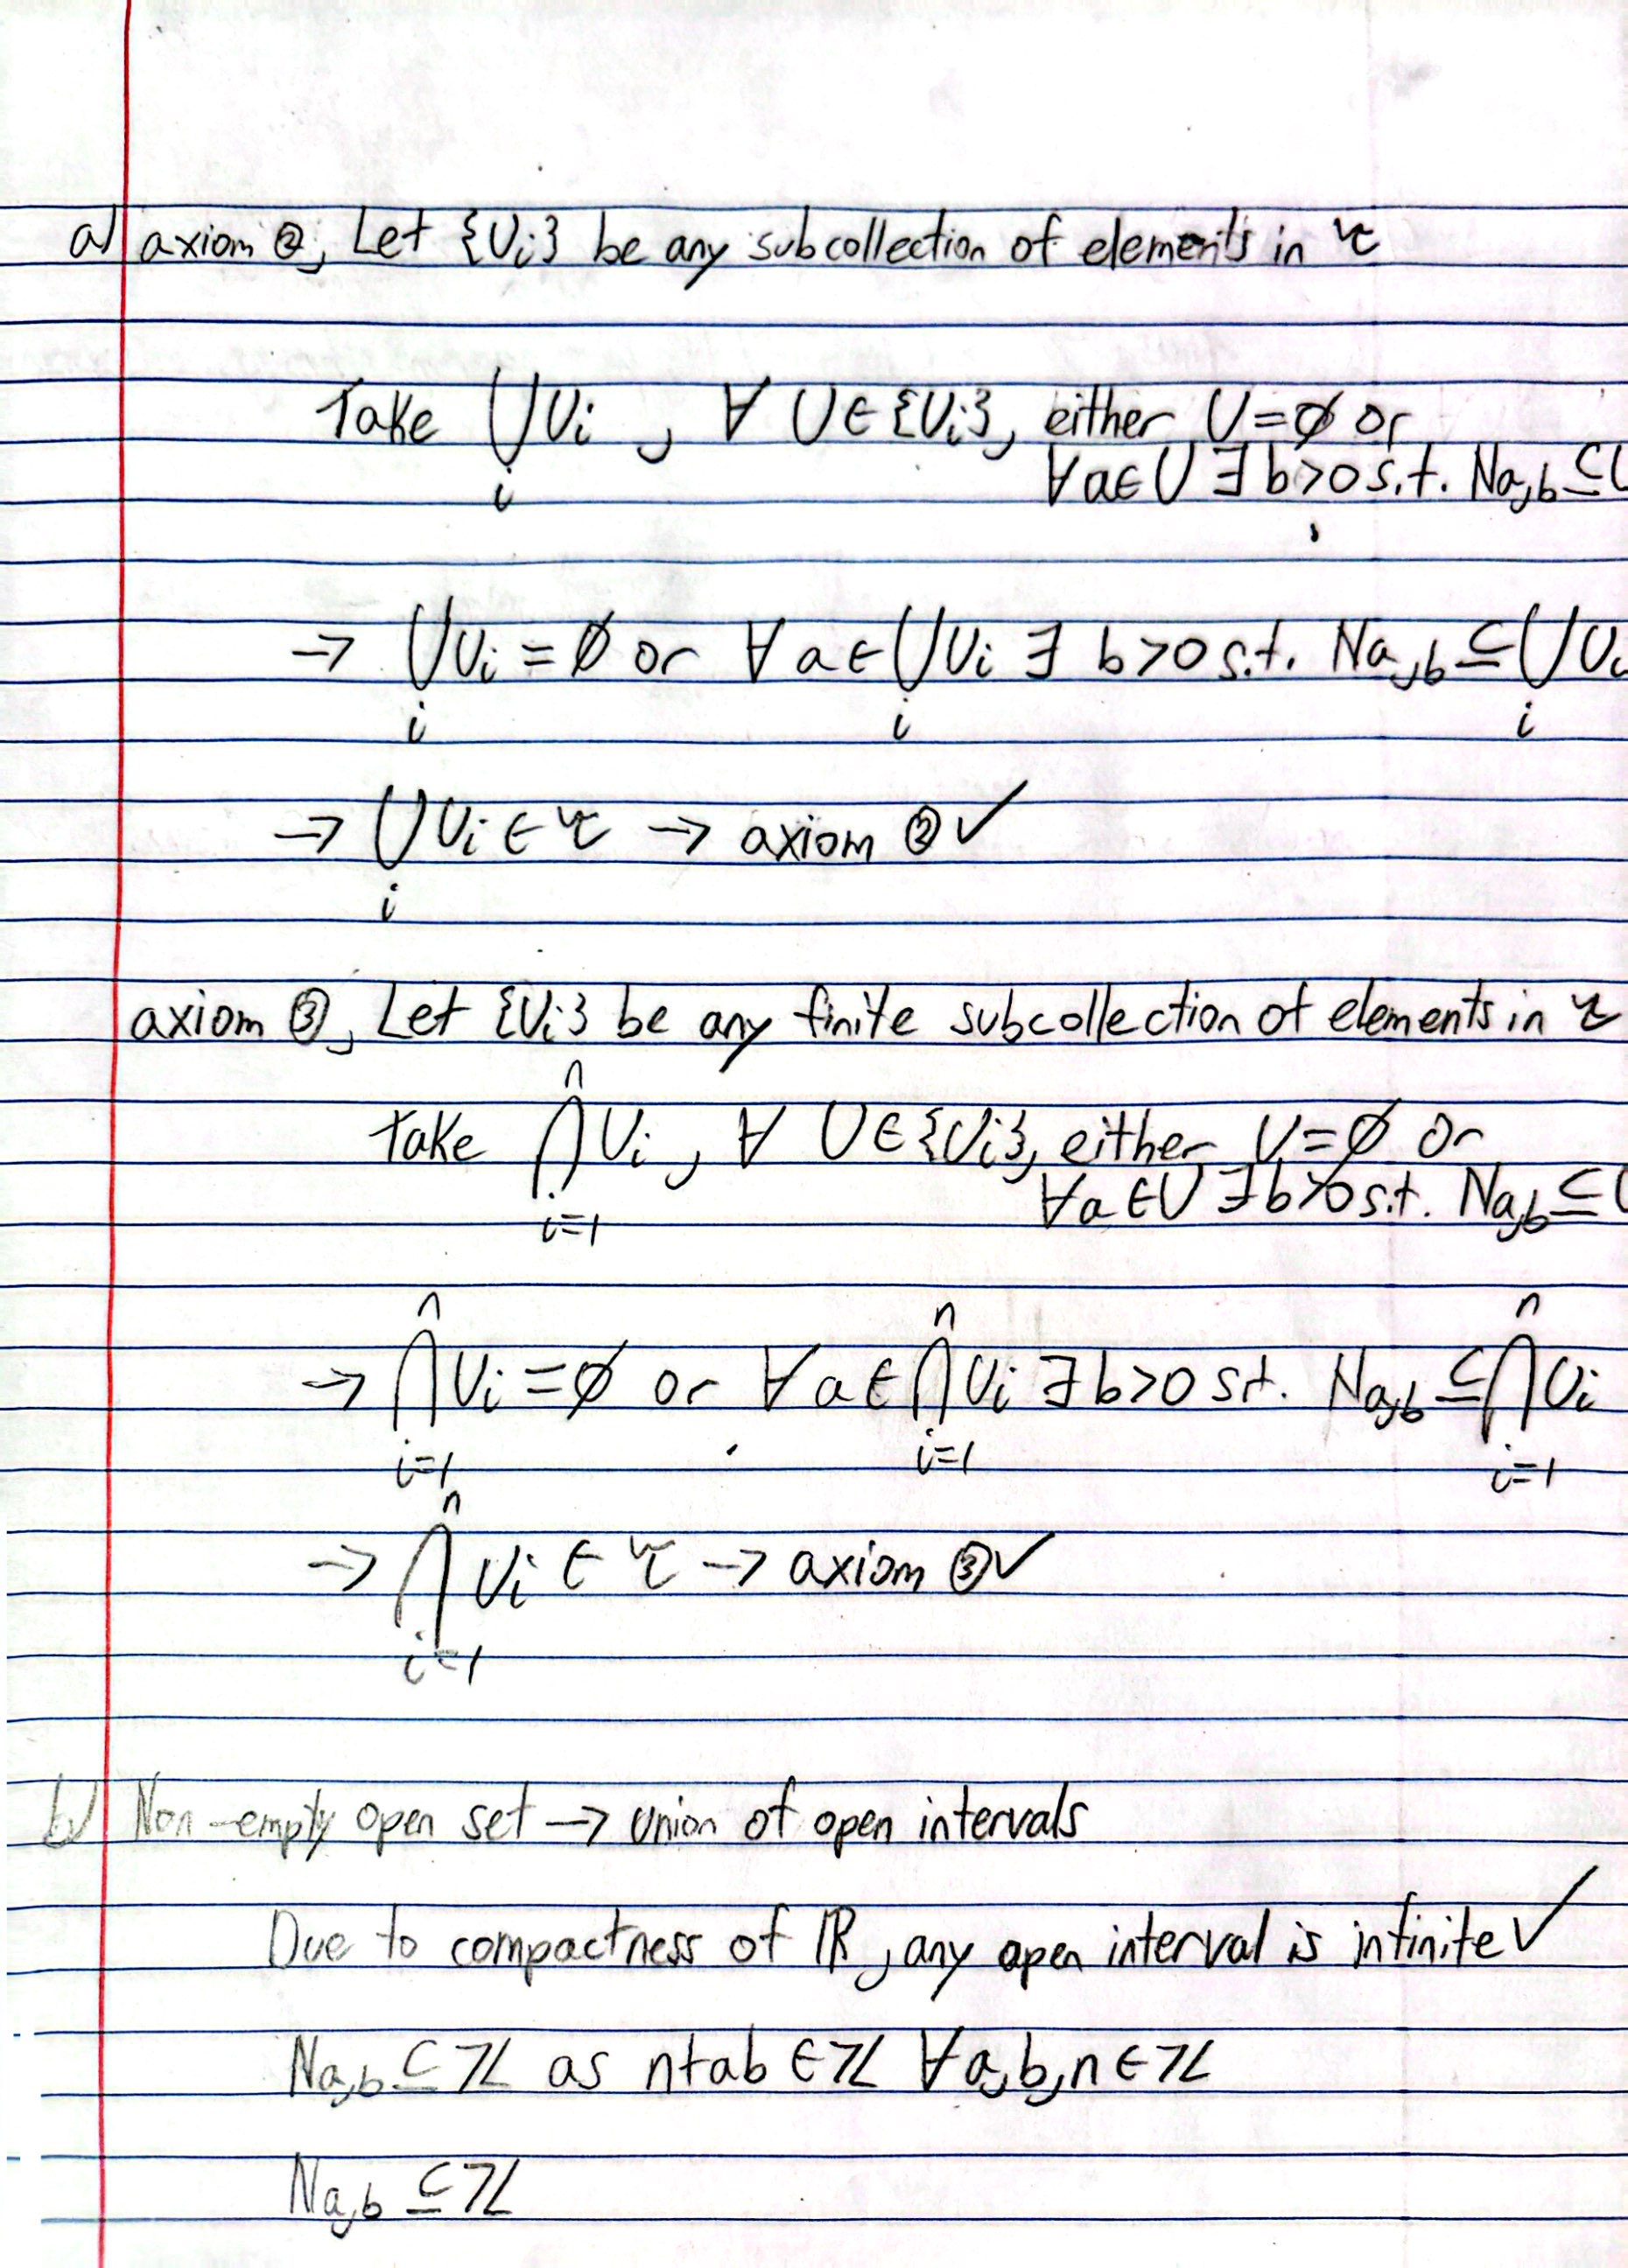 a) axiom ②, Let {Ui} be any subcollection of elements in τ
Take ⋃ Ui , ∀ U∈{Ui}, either U=∅ or
i
∀a∈U ∃ b>0 s.t. Na,b ⊆U
→ ⋃Ui = ∅ or ∀ a∈⋃Ui ∃ b>0 s.t. Na,b ⊆ ⋃Ui
i i i
→ ⋃Ui ∈ τ → axiom ② ✓
i
axiom ③, Let {Ui} be any finite subcollection of elements in τ
n
Take ⋂Ui , ∀ U∈{Ui}, either U=∅ or
∀a∈U ∃b>0 s.t. Na,b ⊆U
i=1
n n n
→ ⋂Ui =∅ or ∀a∈⋂Ui ∃b>0 st. Na,b ⊆⋂Ui
i=1 i=1 i=1
n
→ ⋂Ui ∈ τ → axiom ③ ✓
i=1
b) Non-empty open set → union of open intervals
Due to compactness of ℝ, any open interval is infinite ✓
Na,b ⊆ ℤ as n+ab ∈ℤ ∀a,b,n∈ℤ
Na,b ⊆ℤ